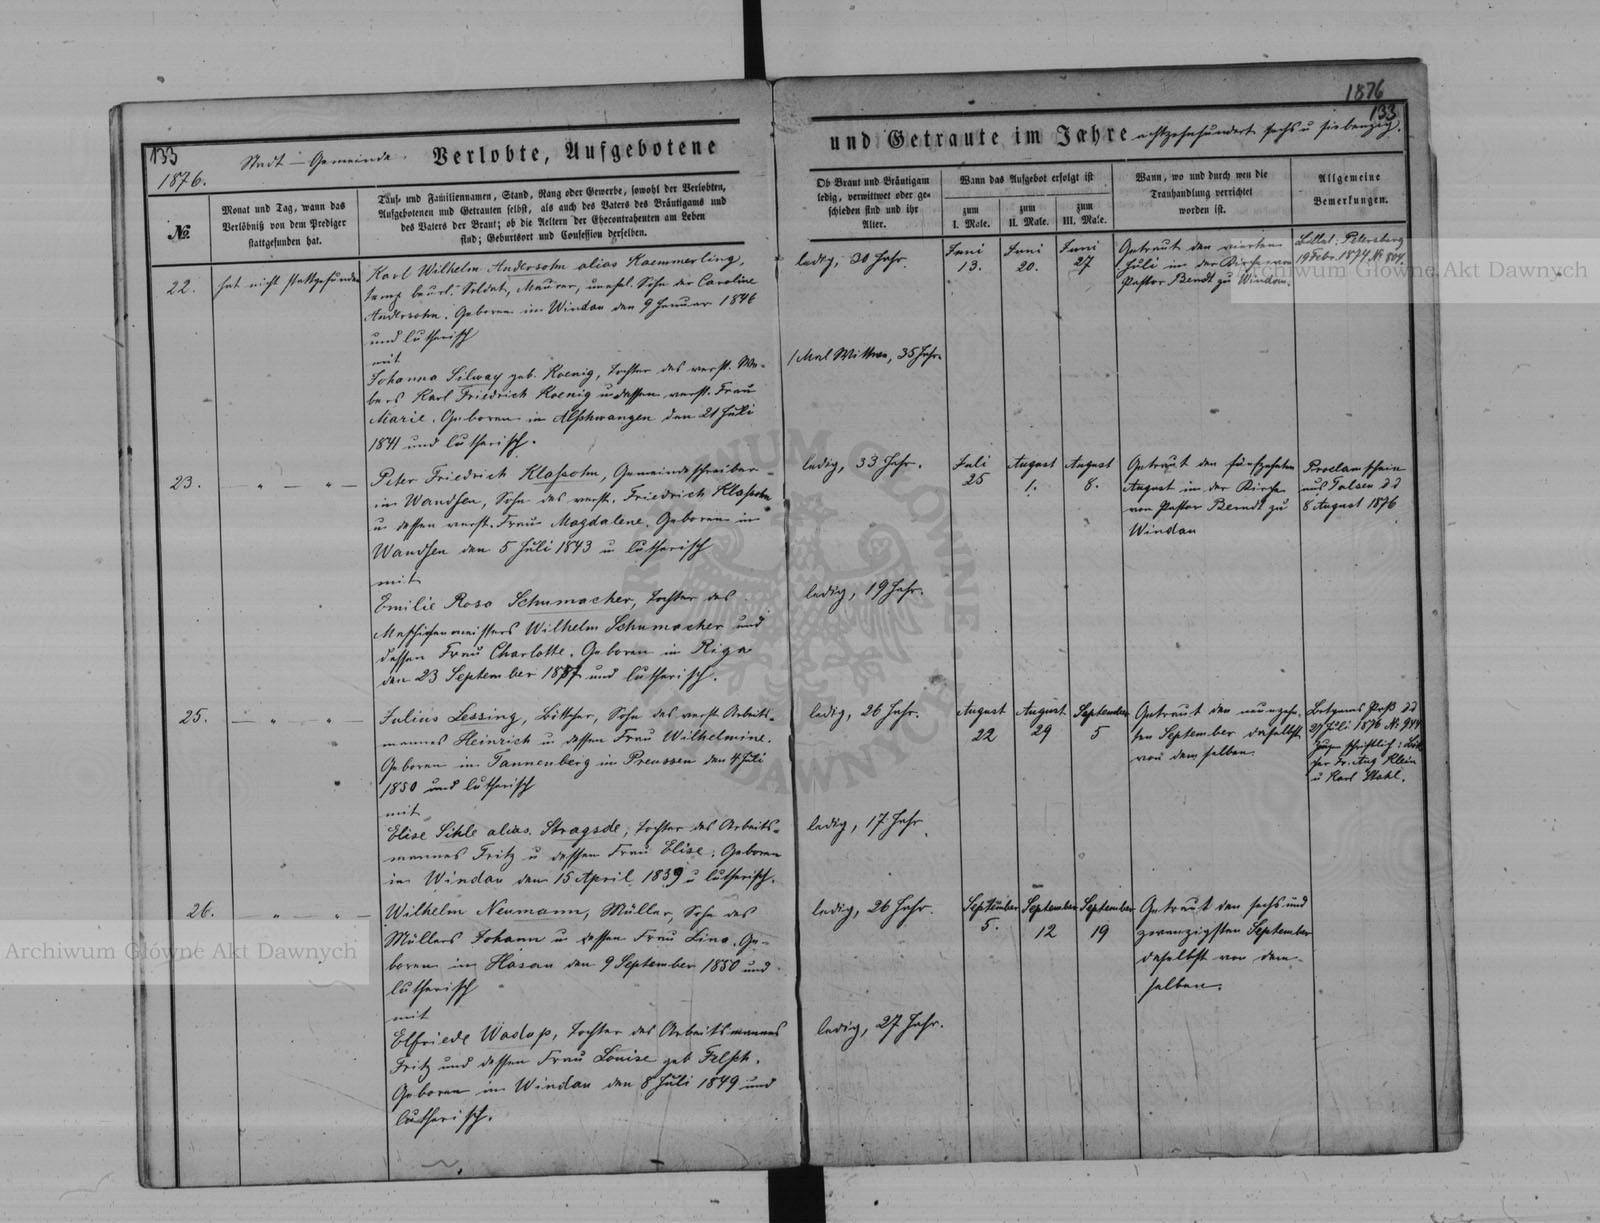 1876
133
133
1876.
Stadt-Gemeinde. Verlobte, Aufgebotene
und Getraute im Jahre achtzehnhundert sechs u siebenzig.
№.
Monat und Tag, wann das
Verlöbniß von dem Prediger
stattgefunden hat.
Tauf- und Familiennamen, Stand, Rang oder Gewerbe, sowohl der Verlobten,
Aufgebotenen und Getrauten selbst, als auch des Vaters des Bräutigams und
des Vaters der Braut; ob die Aeltern der Ehecontrahenten am Leben
sind; Geburtsort und Confession derselben.
Ob Braut und Bräutigam
ledig, verwittwet oder ge-
schieden sind und ihr
Alter.
Wann das Aufgebot erfolgt ist
zum
I. Male.
zum
II. Male.
zum
III. Male.
Wann, wo und durch wen die
Trauhandlung verrichtet
worden ist.
Allgemeine
Bemerkungen.
22.
hat nicht stattgefunden
Karl Wilhelm Andersohn alias Kaemmerling,
temp beurl. Soldat, Maurer, unehel. Sohn der Caroline
Andersohn. Geboren in Windau den 9 Januar 1846
und lutherisch
mit
Johanna Silway geb. Koenig, Tochter des verst. We-
bers Karl Friedrich Koenig u dessen verst. Frau
Marie. Geboren in Alschwangen den 21 Juli
1841 und lutherisch.
ledig, 30 Jahr.
1 Mal Wittwe, 35 Jahr.
Juni
13.
Juni
20.
Juni
27
Getraut den vierten
Juli in der Kirche von
Pastor Berndt zu Windau.
Billet: Petersberg
19 Febr. 1874 № 804.
23.
Peter Friedrich Klassohn, Gemeindeschreiber
in Wandsen, Sohn des verst. Friedrich Klassohn
u dessen verst. Frau Magdalene. Geboren in
Wandsen den 5 Juli 1843 u lutherisch
mit
Emilie Rosa Schumacher, Tochter des
Maschinenmeisters Wilhelm Schumacher und
dessen Frau Charlotte. Geboren in Riga
den 23 September 1857 und lutherisch.
ledig, 33 Jahr.
ledig, 19 Jahr.
Juli
25
August
1.
August
8.
Getraut den fünfzehnten
August in der Kirche
von Pastor Berndt zu
Windau
Proclamschein
aus Talsen dd
8 August 1876
25.
Julius Lessing, Böttcher, Sohn des verst Arbeits-
mannes Heinrich u dessen Frau Wilhelmine.
Geboren in Tannenberg in Preussen den 4 Juli
1850 und lutherisch
mit
Elise Sihle alias Stragsde, Tochter des Arbeits-
mannes Fritz u dessen Frau Elise. Geboren
in Windau den 15 April 1859 u lutherisch.
ledig, 26 Jahr.
ledig, 17 Jahr
August
22
August
29
September
5
Getraut den neunzehn-
ten September daselbst
von demselben
Pass dd
27 Juli 1876 № 944
schriftlich:
Fr. Aug Klein
u Karl Stahl.
26.
Wilhelm Neumann, Müller, Sohn des
Müllers Johann u dessen Frau Lina. Ge-
boren in Hasau den 9 September 1850 und
lutherisch
mit
Elfriede Waslap, Tochter des Arbeitsmannes
Fritz und dessen Frau Louise geb Felsch.
Geboren in Windau den 8 Juli 1849 und
lutherisch.
ledig, 26 Jahr.
ledig, 27 Jahr.
September
5.
September
12
September
19
Getraut den sechs und
zwanzigsten September
daselbst von dem-
selben.
Archiwum Główne Akt Dawnych
Archiwum Główne Akt Dawnych
ARCHIWUM GŁÓWNE AKT DAWNYCH